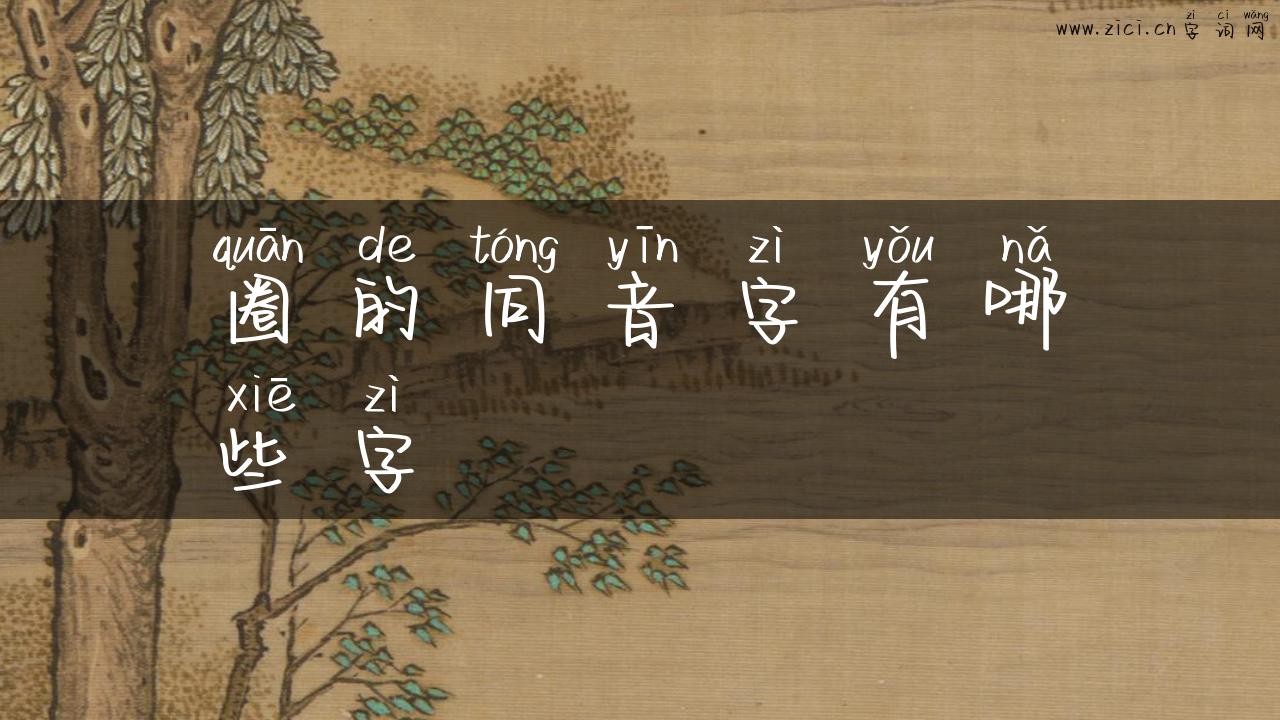 zì cí wǎng
www.zici.cn 字词网
quān de tóng yīn zì yǒu nǎ
圈的同音字有哪
xiē zì
些字